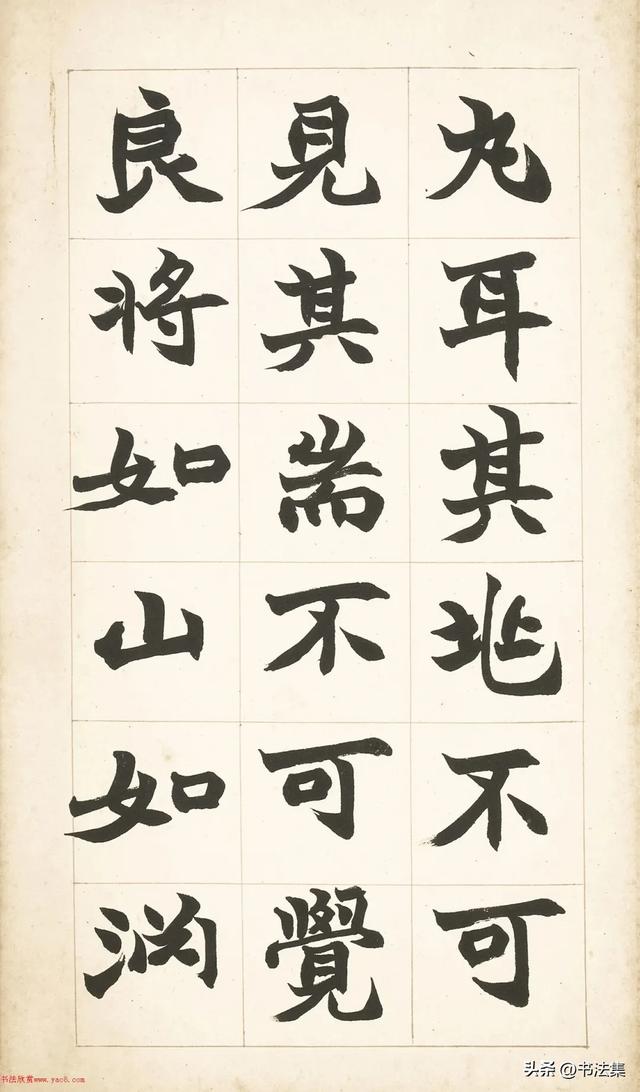 丸耳其兆不可
見其耑不可覺
良将如山如渊
书法欣赏www.yac8.com
头条 @书法集